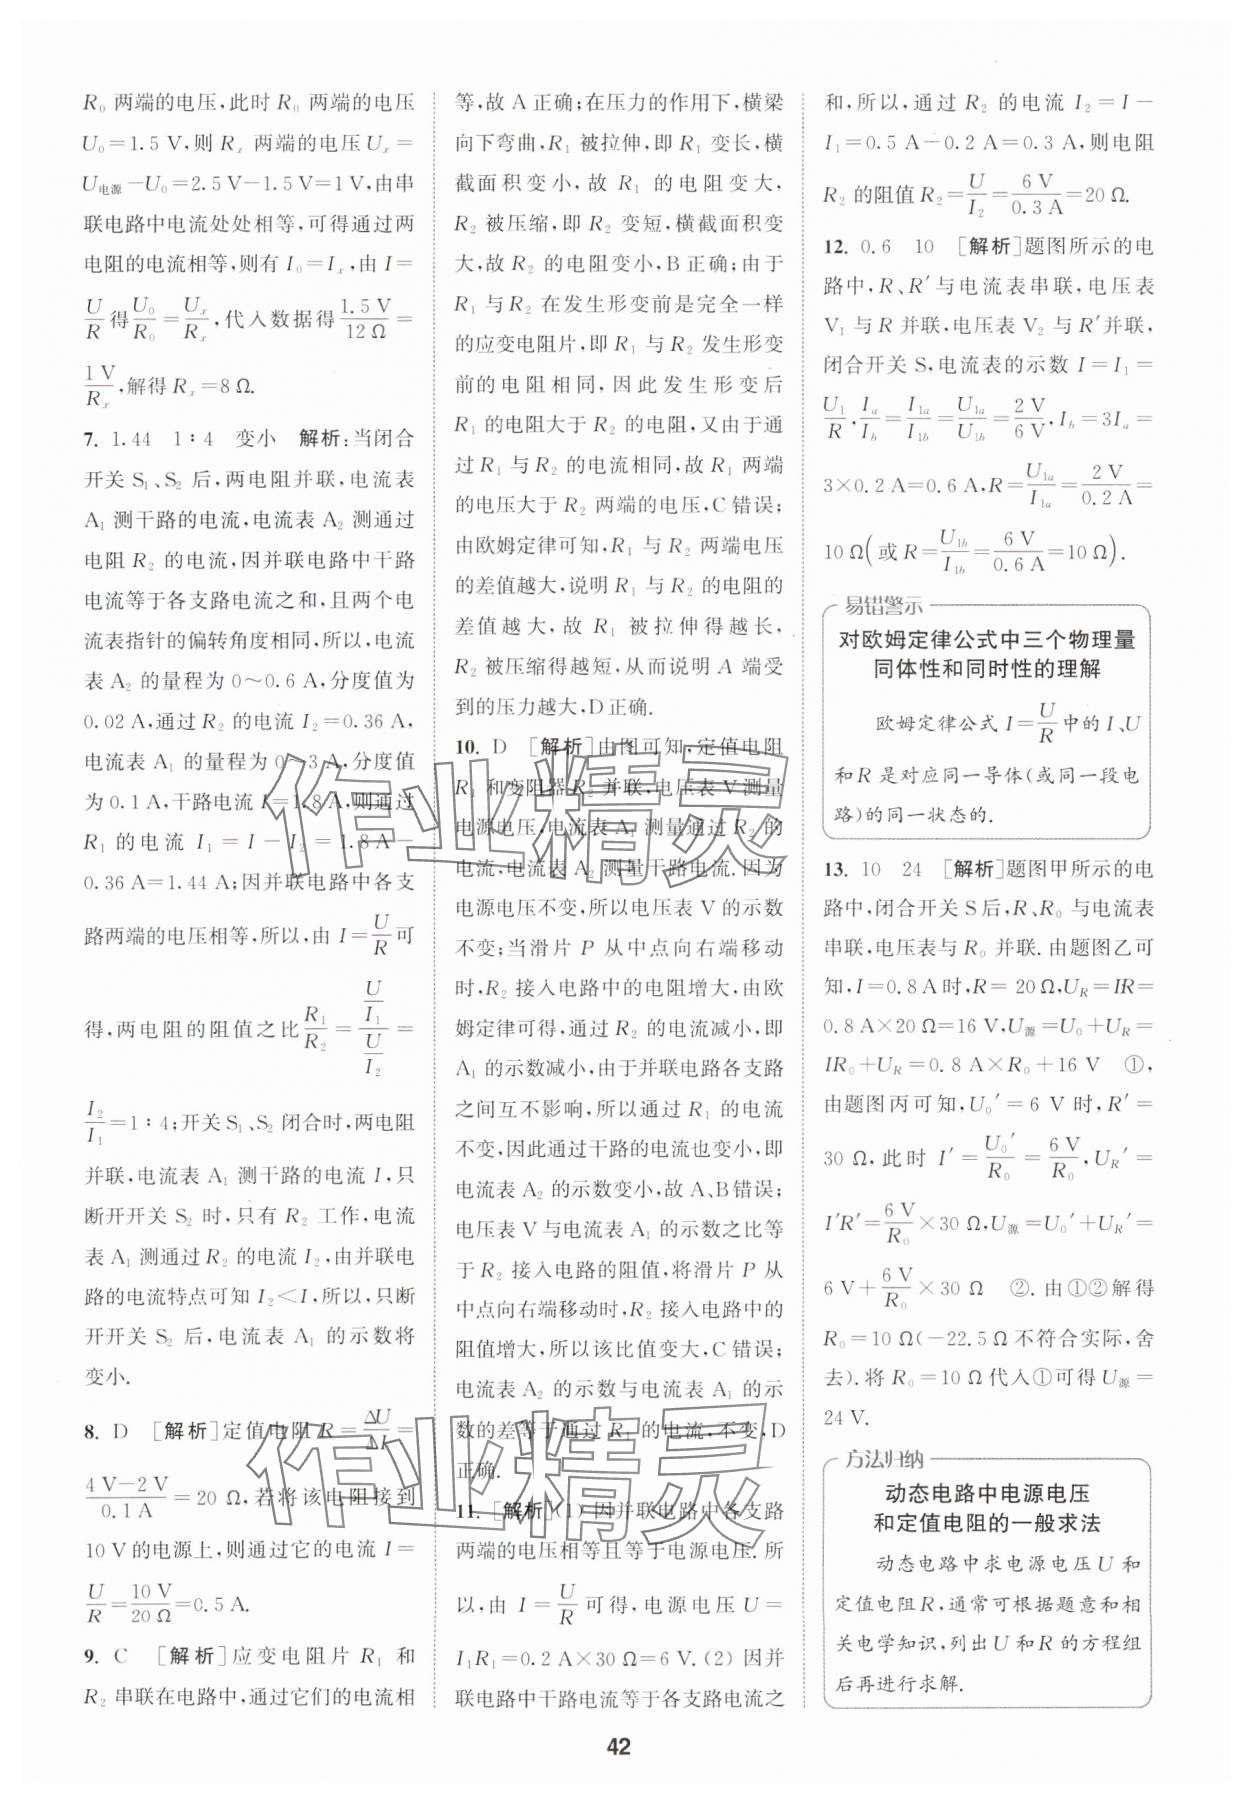 R₀ 两端的电压,此时 R₀ 两端的电压
U₀=1.5 V,则 Rₓ 两端的电压 Uₓ=
U电源-U₀=2.5 V-1.5 V=1 V,由串
联电路中电流处处相等,可得通过两
电阻的电流相等,则有 I₀=Iₓ,由 I=
U/R 得 U₀/R₀=Uₓ/Rₓ,代入数据得 1.5 V/12 Ω=
1 V/Rₓ,解得 Rₓ=8 Ω.
7. 1.44 1∶4 变小 解析:当闭合
开关 S₁、S₂ 后,两电阻并联,电流表
A₁ 测干路的电流,电流表 A₂ 测通过
电阻 R₂ 的电流,因并联电路中干路
电流等于各支路电流之和,且两个电
流表指针的偏转角度相同,所以,电流
表 A₂ 的量程为 0～0.6 A,分度值为
0.02 A,通过 R₂ 的电流 I₂=0.36 A,
电流表 A₁ 的量程为 0～3 A,分度值
为 0.1 A,干路电流 I=1.8 A,则通过
R₁ 的电流 I₁=I-I₂=1.8 A-
0.36 A=1.44 A;因并联电路中各支
路两端的电压相等,所以,由 I=U/R 可
得,两电阻的阻值之比 R₁/R₂=(U/I₁)/(U/I₂)=
I₂/I₁=1∶4;开关 S₁、S₂ 闭合时,两电阻
并联,电流表 A₁ 测干路的电流 I,只
断开开关 S₂ 时,只有 R₂ 工作,电流
表 A₁ 测通过 R₂ 的电流 I₂,由并联电
路的电流特点可知 I₂<I,所以,只断
开开关 S₂ 后,电流表 A₁ 的示数将
变小.
8. D [解析]定值电阻 R=ΔU/ΔI=
(4 V-2 V)/0.1 A=20 Ω,若将该电阻接到
10 V的电源上,则通过它的电流 I=
U/R=10 V/20 Ω=0.5 A.
9. C [解析]应变电阻片 R₁ 和
R₂ 串联在电路中,通过它们的电流相
等,故 A 正确;在压力的作用下,横梁
向下弯曲,R₁ 被拉伸,即 R₁ 变长,横
截面积变小,故 R₁ 的电阻变大,
R₂ 被压缩,即 R₂ 变短,横截面积变
大,故 R₂ 的电阻变小,B 正确;由于
R₁ 与 R₂ 在发生形变前是完全一样
的应变电阻片,即 R₁ 与 R₂ 发生形变
前的电阻相同,因此发生形变后
R₁ 的电阻大于 R₂ 的电阻,又由于通
过 R₁ 与 R₂ 的电流相同,故 R₁ 两端
的电压大于 R₂ 两端的电压,C 错误;
由欧姆定律可知,R₁ 与 R₂ 两端电压
的差值越大,说明 R₁ 与 R₂ 的电阻的
差值越大,故 R₁ 被拉伸得越长,
R₂ 被压缩得越短,从而说明 A 端受
到的压力越大,D 正确.
10. D [解析]由图可知,定值电阻
R₁ 和变阻器 R₂ 并联,电压表 V 测量
电源电压,电流表 A₁ 测量通过 R₂ 的
电流,电流表 A₂ 测量干路电流.因为
电源电压不变,所以电压表 V 的示数
不变;当滑片 P 从中点向右端移动
时,R₂ 接入电路中的电阻增大,由欧
姆定律可得,通过 R₂ 的电流减小,即
A₁ 的示数减小,由于并联电路各支路
之间互不影响,所以通过 R₁ 的电流
不变,因此通过干路的电流也变小,即
电流表 A₂ 的示数变小,故 A、B错误;
电压表 V 与电流表 A₁ 的示数之比等
于 R₂ 接入电路的阻值,将滑片 P 从
中点向右端移动时,R₂ 接入电路中的
阻值增大,所以该比值变大,C 错误;
电流表 A₂ 的示数与电流表 A₁ 的示
数的差等于通过 R₁ 的电流,不变,D
正确.
11. [解析](1) 因并联电路中各支路
两端的电压相等且等于电源电压.所
以,由 I=U/R 可得,电源电压 U=
I₁R₁=0.2 A×30 Ω=6 V.(2) 因并
联电路中干路电流等于各支路电流之
和,所以,通过 R₂ 的电流 I₂=I-
I₁=0.5 A-0.2 A=0.3 A,则电阻
R₂ 的阻值 R₂=U/I₂=6 V/0.3 A=20 Ω.
12. 0.6 10 [解析]题图所示的电
路中,R、R′与电流表串联,电压表
V₁ 与 R 并联,电压表 V₂ 与 R′并联,
闭合开关 S,电流表的示数 I=I₁=
U₁/R,Iₐ/I_b=I₁ₐ/I₁b=U₁ₐ/U₁b=2 V/6 V,I_b=3Iₐ=
3×0.2 A=0.6 A,R=U₁ₐ/I₁ₐ=2 V/0.2 A=
10 Ω(或 R=U₁b/I₁b=6 V/0.6 A=10 Ω).
易错警示
对欧姆定律公式中三个物理量
同体性和同时性的理解
欧姆定律公式 I=U/R 中的 I、U
和 R 是对应同一导体(或同一段电
路)的同一状态的.
13. 10 24 [解析]题图甲所示的电
路中,闭合开关 S 后,R、R₀ 与电流表
串联,电压表与 R₀ 并联.由题图乙可
知,I=0.8 A时,R=20 Ω,U_R=IR=
0.8 A×20 Ω=16 V,U源=U₀+U_R=
IR₀+U_R=0.8 A×R₀+16 V ①,
由题图丙可知,U₀′=6 V 时,R′=
30 Ω,此时 I′=U₀′/R₀=6 V/R₀,U_R′=
I′R′=6 V/R₀×30 Ω,U源=U₀′+U_R′=
6 V+6 V/R₀×30 Ω ②.由①②解得
R₀=10 Ω(-22.5 Ω 不符合实际,舍
去).将 R₀=10 Ω代入①可得 U源=
24 V.
方法归纳
动态电路中电源电压
和定值电阻的一般求法
动态电路中求电源电压 U 和
定值电阻 R,通常可根据题意和相
关电学知识,列出 U 和 R 的方程组
后再进行求解.
42
作业精灵
作业精灵